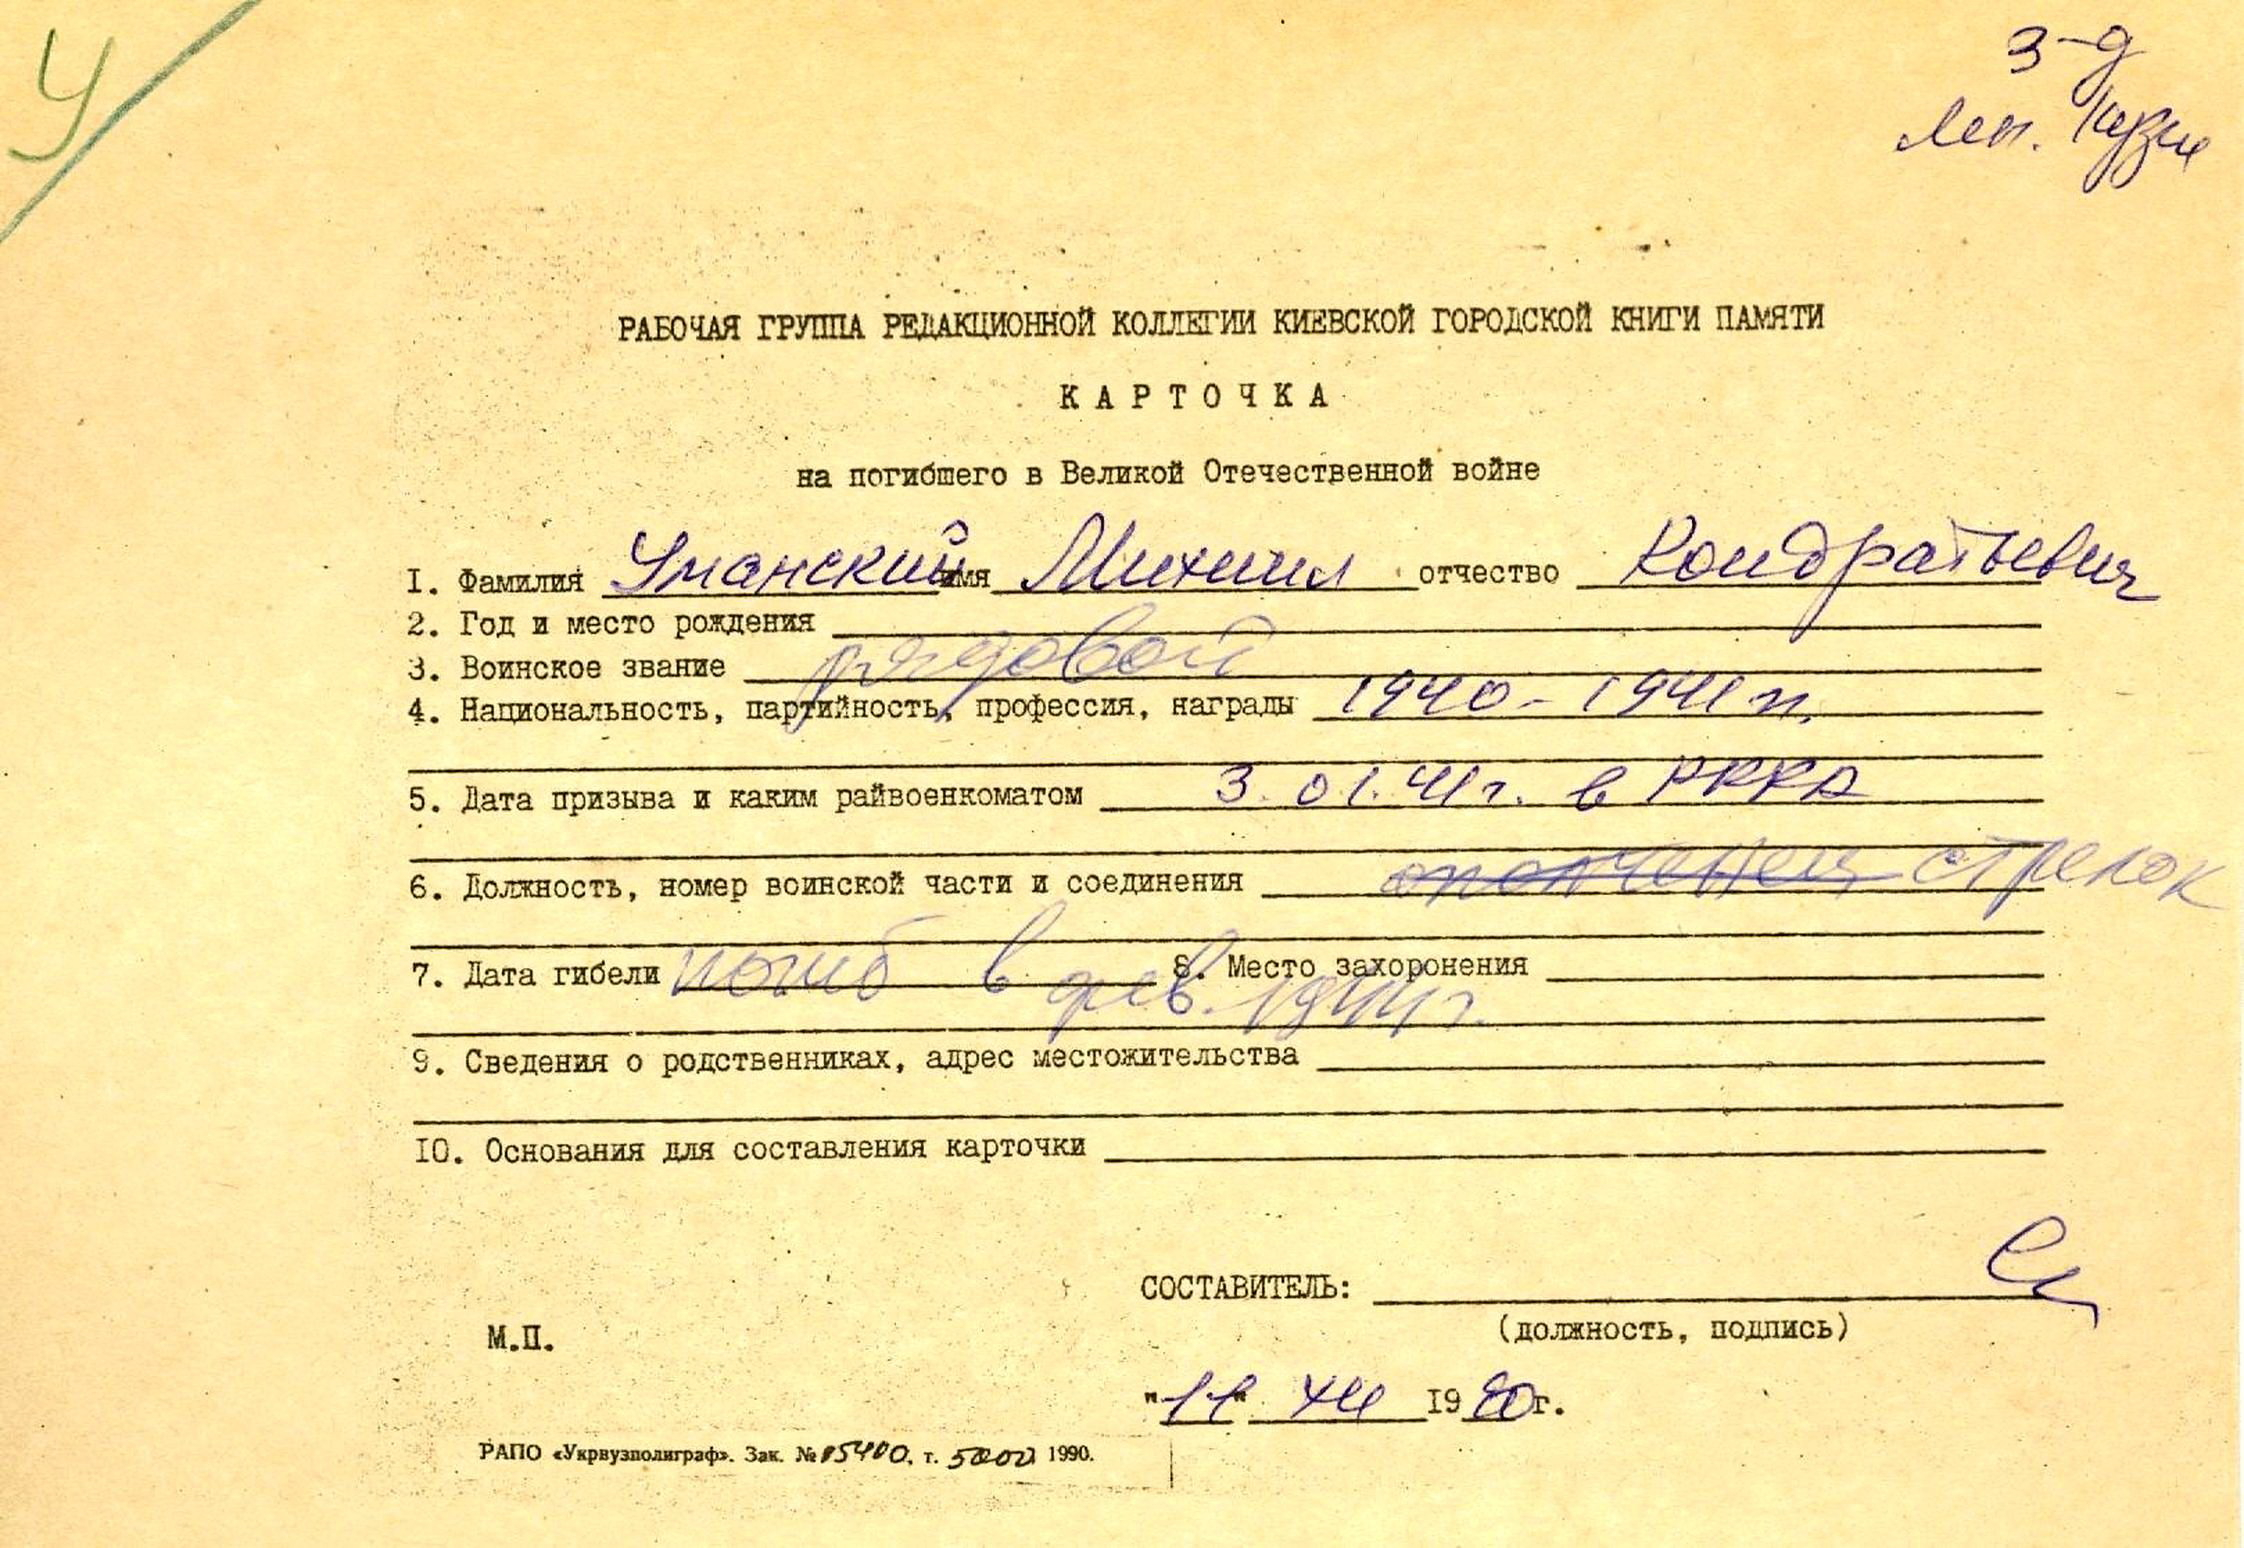 У
з-д
Лен. Кузн
РАБОЧАЯ ГРУППА РЕДАКЦИОННОЙ КОЛЛЕГИИ КИЕВСКОЙ ГОРОДСКОЙ КНИГИ ПАМЯТИ
КАРТОЧКА
на погибшего в Великой Отечественной войне
I. Фамилия Уманский имя Михаил отчество Кондратьевич
2. Год и место рождения
3. Воинское звание рядовой
4. Национальность, партийность, профессия, награды 1940-1941 гг.
5. Дата призыва и каким райвоенкоматом 3.01.41г. в РККА
6. Должность, номер воинской части и соединения ополченец стрелок
7. Дата гибели погиб в фев. 1944г. 8. Место захоронения
9. Сведения о родственниках, адрес местожительства
IO. Основания для составления карточки
СОСТАВИТЕЛЬ:
(должность, подпись)
М.П.
"11" XII 1990г.
РАПО «Укрвузполиграф». Зак. № 05400, т. 5000 1990.